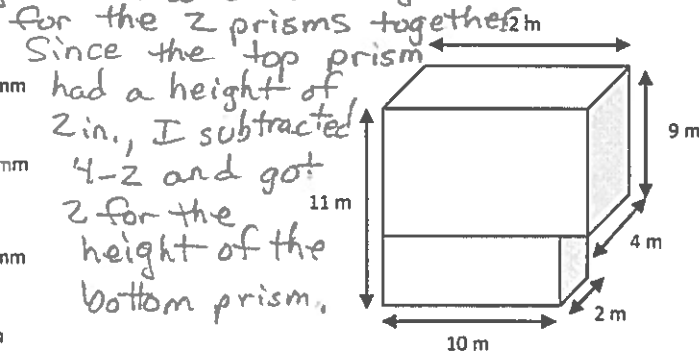 for the 2 prisms together.
Since the top prism
had a height of
2 in., I subtracted
4-2 and got
2 for the
height of the
bottom prism.
mm
mm
mm
12 m
9 m
11 m
4 m
2 m
10 m